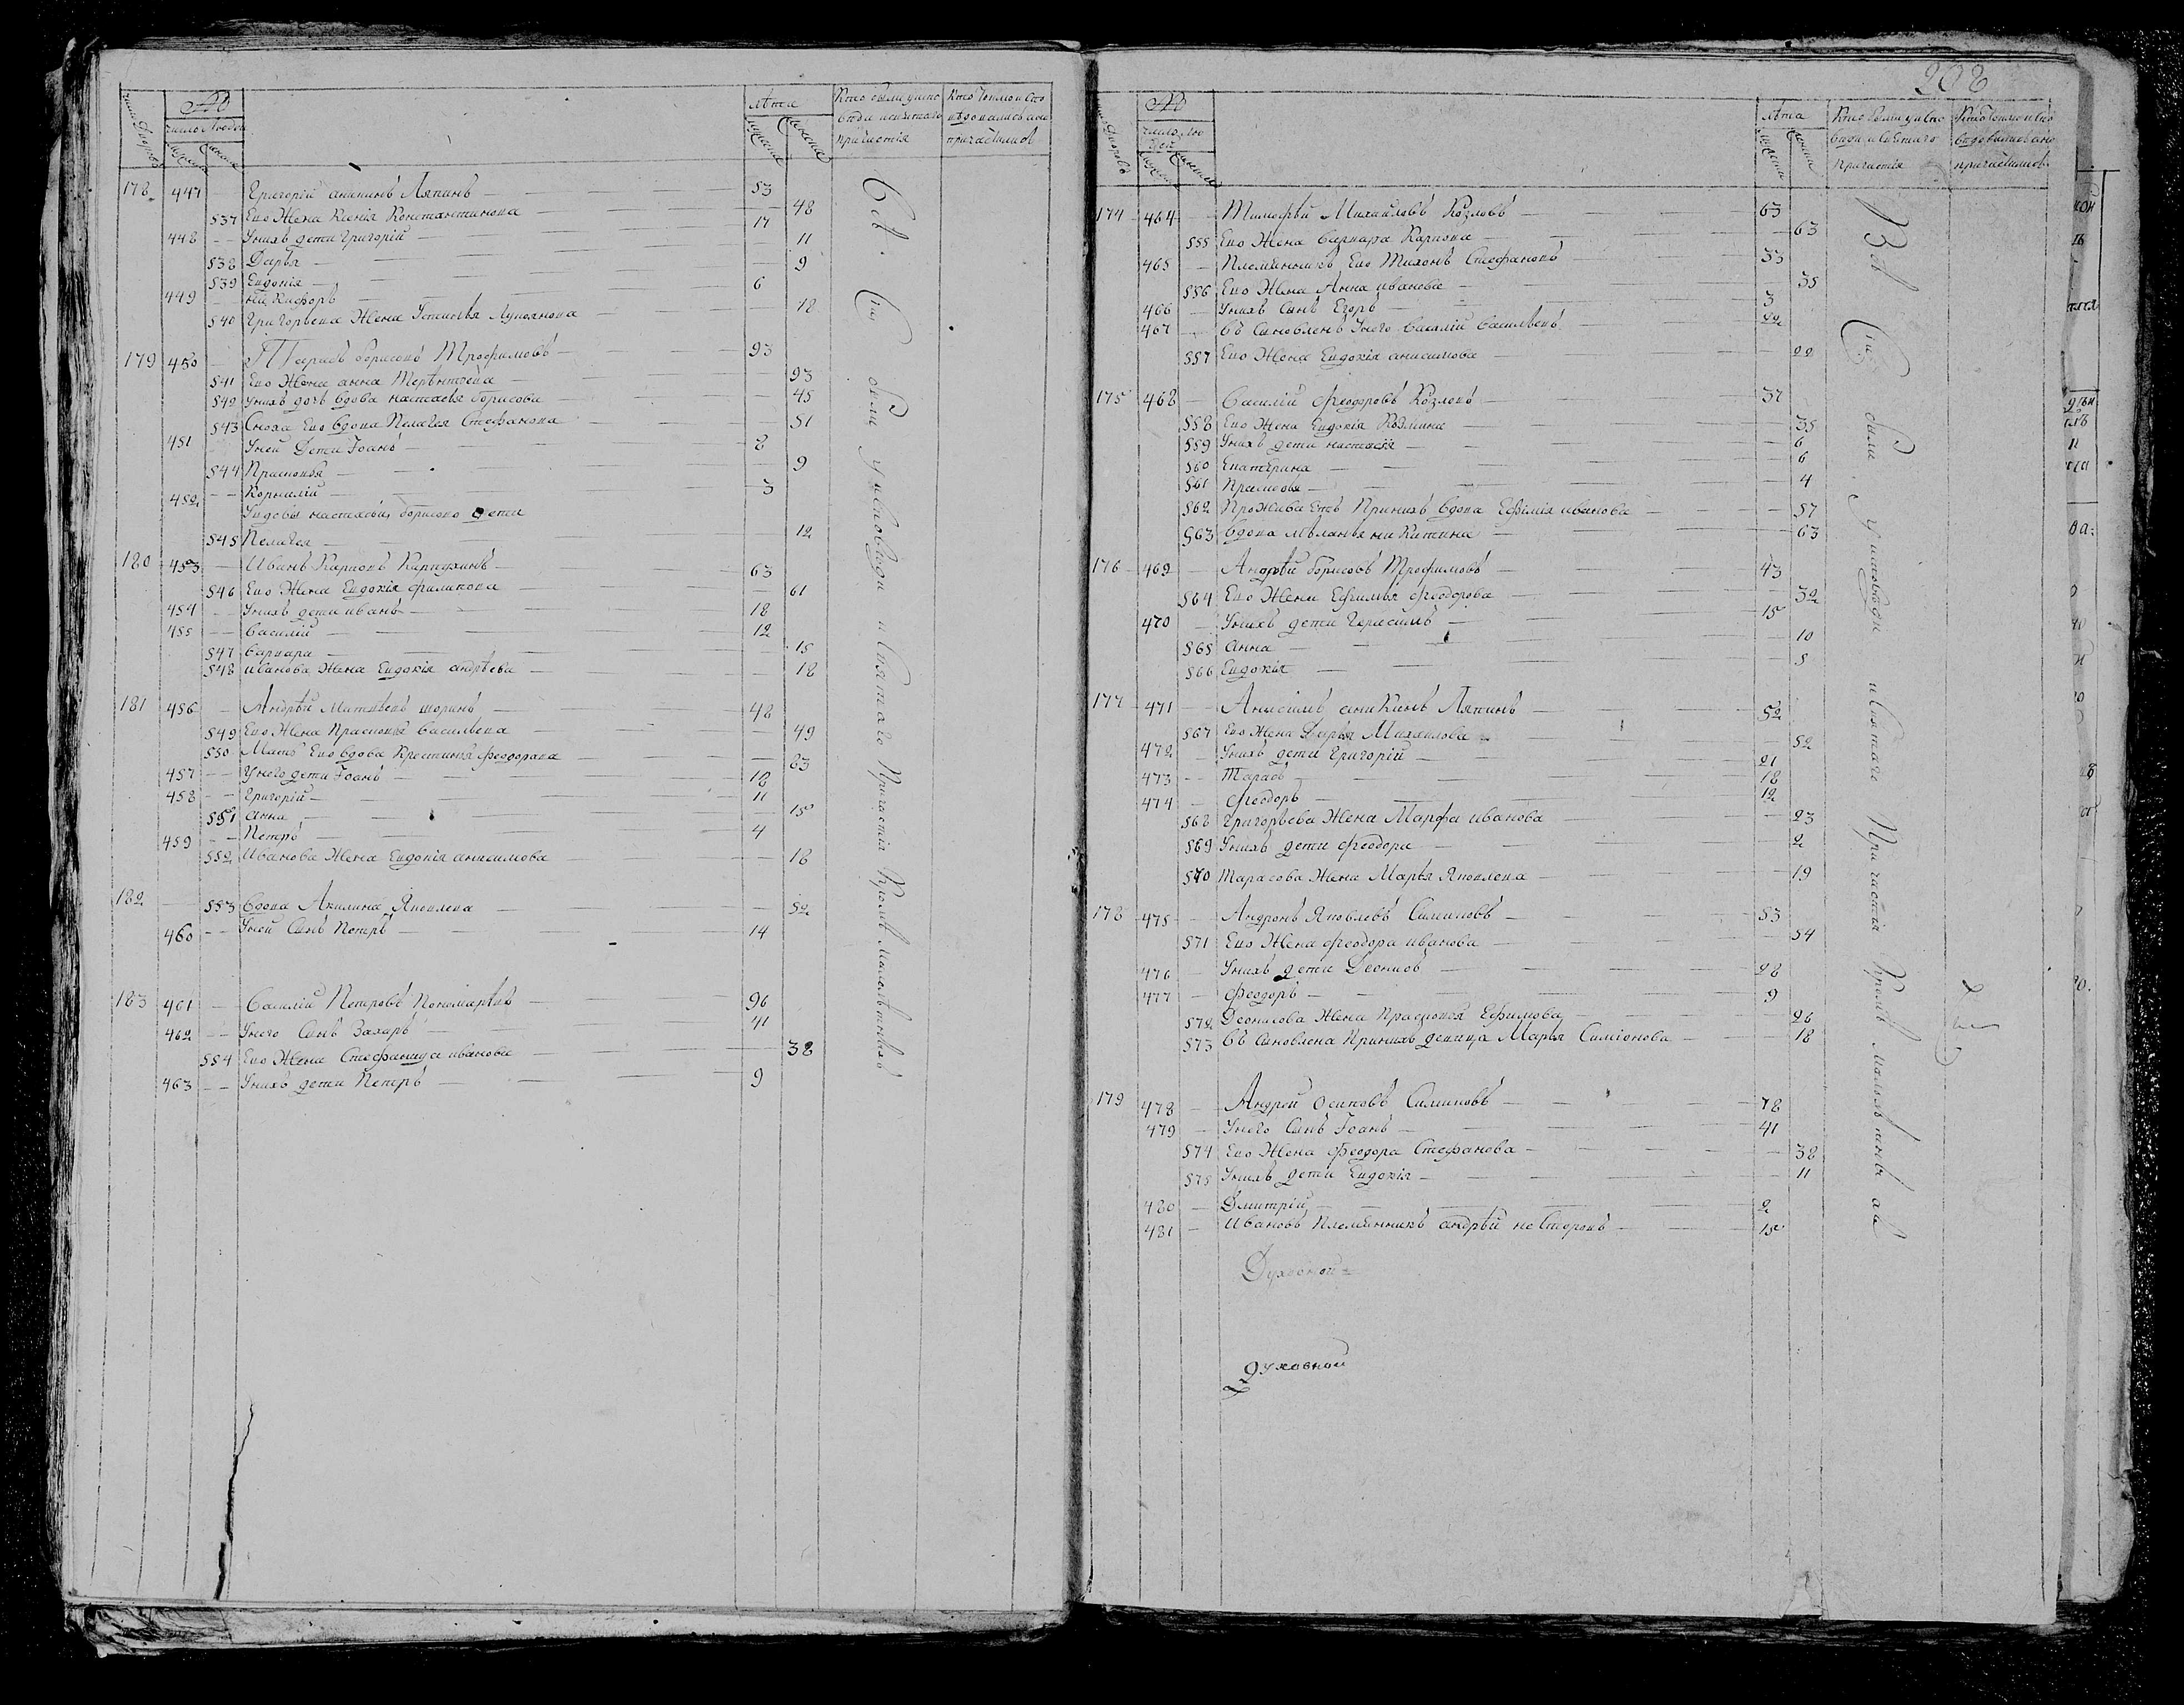 №
число людей
мужеска
женска
лѣта
мужеска
женска
Кто были у испо
вѣди и святаго
причастія
178 447 Григорій аникинъ Ляпинъ 53
537 Ево Жена Ксенія Константинова 48
448 У нихъ дети Григорій 17
538 Дарья 11
539 Евдокія 9
449 Никифоръ 6
540 Григорьева Жена Устинья Лукоянова 18
179 450 Борисовъ Трофимовъ 93
541 Ево Жена анна Терѣнтьева 93
542 У нихъ дочь вдова настасья борисова 45
543 Сноха Ево вдова Пелагея Стефанова 51
451 У ней Дети Iоанъ 8
544 Прасковья 9
452 Корнилій 3
У вдовы настасьи борисово дети
545 Пелагея 12
180 453 Иванъ Карповъ Карпухинъ 63
546 Ево Жена Евдокія филипова 61
454 У нихъ дети иванъ 18
455 Василій 12
547 Варвара 15
548 иванова Жена Евдокія андрѣева 18
181 456 Андрѣй Матвѣевъ шоринъ 48
549 Ево Жена Прасковья Васильева 49
550 Мать Ево вдова Крестинья феодорова 83
457 У него дети Iоанъ 18
458 Григорій 11
551 Анна 15
459 Петръ 4
552 Иванова Жена Евдокія анисимова 18
182 553 Вдова Акилина Яковлева 52
460 У ней Сынъ Петръ 14
183 461 Василій Петровъ Пономарѣвъ 96
462 У него Сынъ Захаръ 41
554 Ево Жена Стефанида иванова 38
463 У нихъ дети Петръ 9
Всѣ Сіи были у исповѣди и Святаго Причастія Кромѣ малолѣтнихъ
208
№
число лю
дей
лѣта
Кто были у испо
вѣди и святаго
причастія
174 464 Тимофѣй Михайловъ Козловъ 63
555 Ево Жена Варвара Карпова 63
465 Племянникъ Ево Тихонъ Стефановъ 33
556 Ево Жена Анна иванова 35
466 У нихъ Сынъ Егоръ 3
467 Въ Сыновленъ У него Василій Васильевъ 22
557 Ево Жена Евдокія анисимова 22
175 468 Василій Феодоровъ Козловъ 37
558 Ево Жена Евдокія Козмина 35
559 У нихъ дети настасія 6
560 Екатерина 6
561 Прасковья 4
562 Прожива Етъ При нихъ вдова Ефимія иванова 57
563 Вдова мѣланья никитина 63
176 469 Андрѣй борисовъ Трофимовъ 43
564 Ево Жена Ефимья феодорова 32
470 У нихъ дети Герасимъ 15
565 Анна 10
566 Евдокія 5
177 471 Анисимъ аникинъ Ляпинъ 52
567 Ево Жена Дарья Михаилова 52
472 У нихъ дети Григорій 21
473 Тарасъ 18
474 феодоръ 12
568 Григорьева Жена Марфа иванова 23
569 У нихъ дети феодора 2
570 Тарасова Жена Марья Яковлева 19
178 475 Андронъ Яковлевъ Симиновъ 53
571 Ево Жена феодора иванова 54
476 У нихъ дети Леонисъ 28
477 феодоръ 9
572 Леонисова Жена Прасковья Ефимова 26
573 Въ Сыновлена При нихъ девица Марья Симіонова 18
179 478 Андрей осиповъ Симиновъ 78
479 У него Сынъ Iоанъ 41
574 Ево Жена феодора Стефанова 38
575 У нихъ дети Евдокія 11
480 Дмитрій 2
481 Ивановъ Племянникъ андрѣй несторовъ 15
Всѣ Сіи были у исповѣди и Святаго Причастія Кромѣ малолѣтныхъ
Духовной
духовной